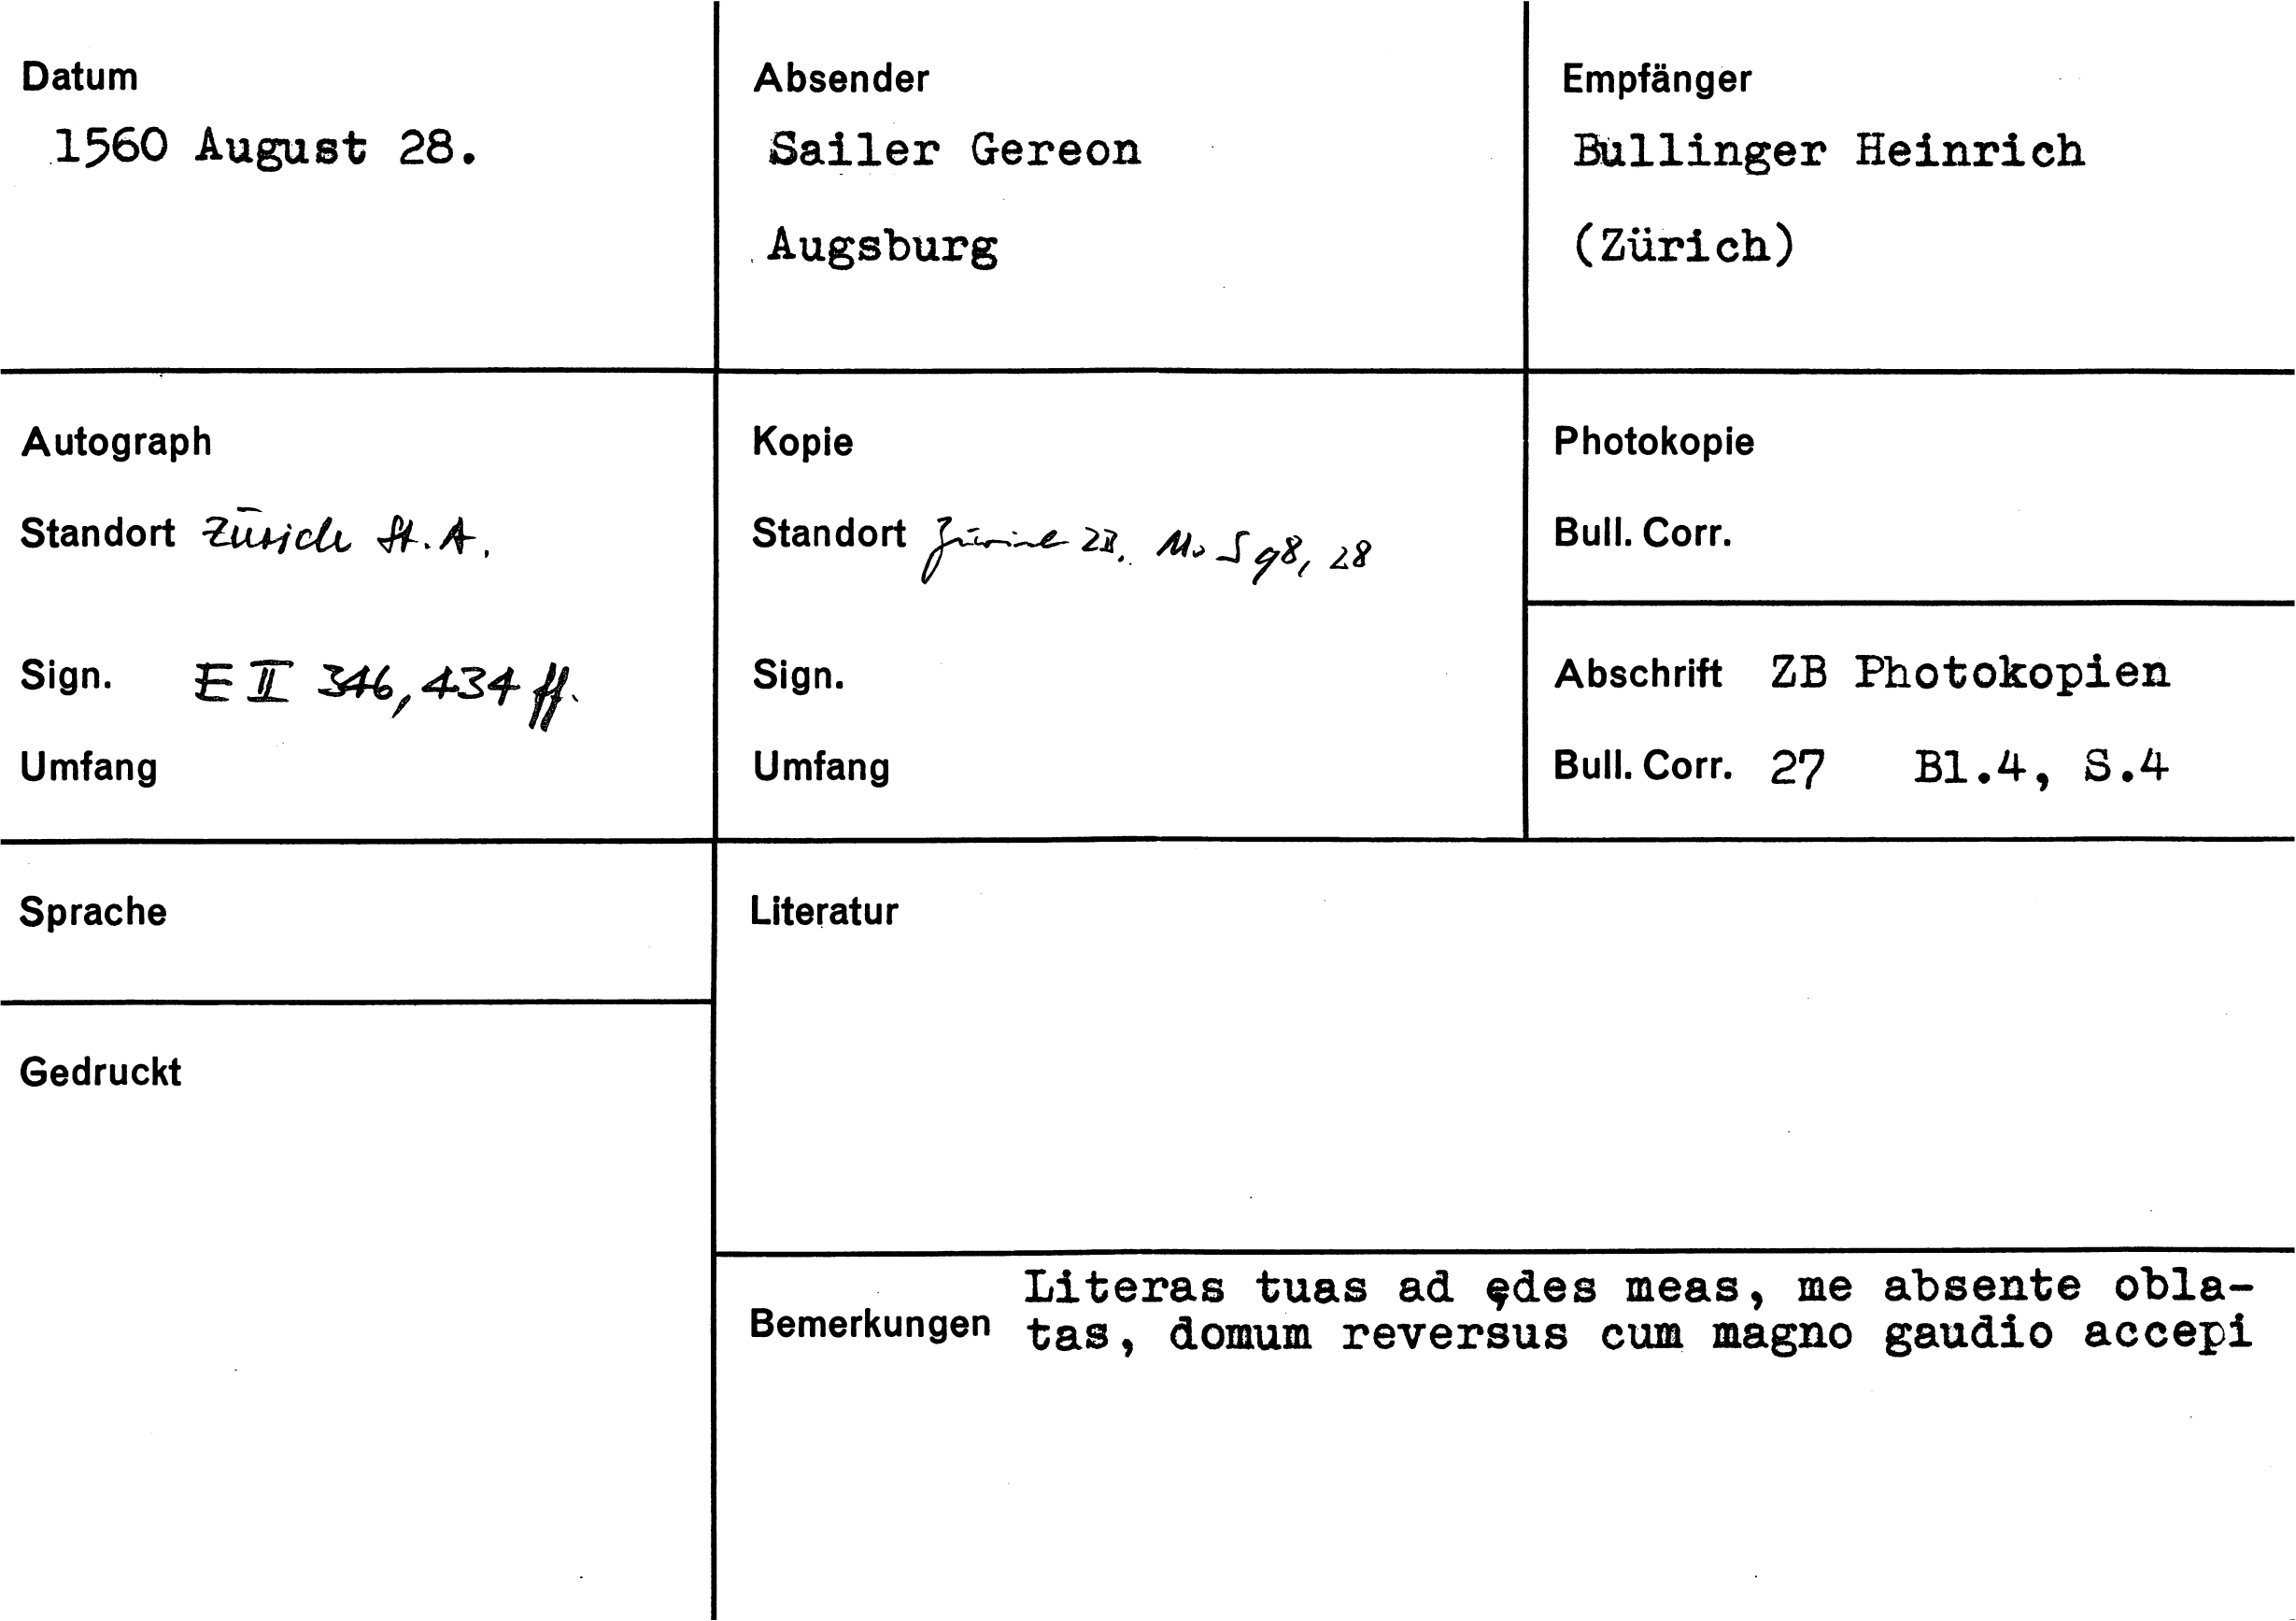 Datum
1560 August 28.
Absender
Sailer Gereon
Augsburg
Empfänger
Bullinger Heinrich
(Zürich)
Autograph
Standort Zürich St. A.
Sign. E II 346, 434 ff.
Umfang
Kopie
Standort Zürich ZB. Ms S 98, 28
Sign.
Umfang
Photokopie
Bull. Corr.
Abschrift ZB Photokopien
Bull. Corr. 27 Bl.4, S.4
Sprache
Gedruckt
Literatur
Bemerkungen
Literas tuas ad ędes meas, me absente obla-
tas, domum reversus cum magno gaudio accepi